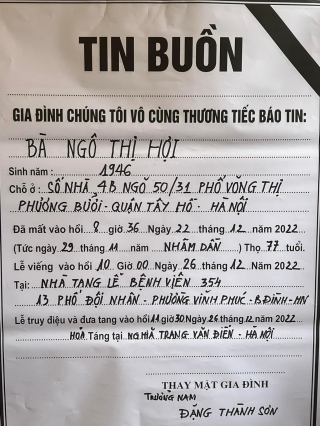 TIN BUỒN
GIA ĐÌNH CHÚNG TÔI VÔ CÙNG THƯƠNG TIẾC BÁO TIN:
BÀ NGÔ THỊ HỢI
Sinh năm: 1946
Chỗ ở: SỐ NHÀ 4B NGÕ 50/31 PHỐ VÕNG THỊ
PHƯỜNG BƯỞI - QUẬN TÂY HỒ - HÀ NỘI
Đã mất vào hồi 8 giờ 36 Ngày 22 tháng 12 năm 2022
(Tức ngày 29 tháng 11 năm NHÂM DẦN) Thọ 77 tuổi.
Lễ viếng vào hồi 10 Giờ 00 Ngày 26 tháng 12 Năm 2022
Tại: NHÀ TANG LỄ BỆNH VIỆN 354
13 PHỐ ĐỘI NHÂN - PHƯỜNG VĨNH PHÚC - BĐÌNH - HN
Lễ truy điệu và đưa tang vào hồi 11 giờ 30 Ngày 26 tháng 12 năm 2022
HOẢ Táng tại NGHĨA TRANG VĂN ĐIỂN - HÀ NỘI
THAY MẶT GIA ĐÌNH
TRƯỞNG NAM
ĐẶNG THÀNH SƠN